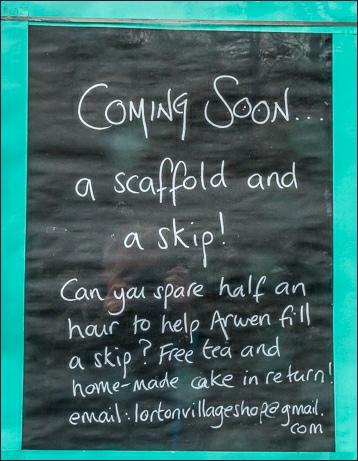 COMING SOON...
a scaffold and
a skip!
Can you spare half an
hour to help Arwen fill
a skip? Free tea and
home-made cake in return!
email: lortonvillageshop@gmail.
com